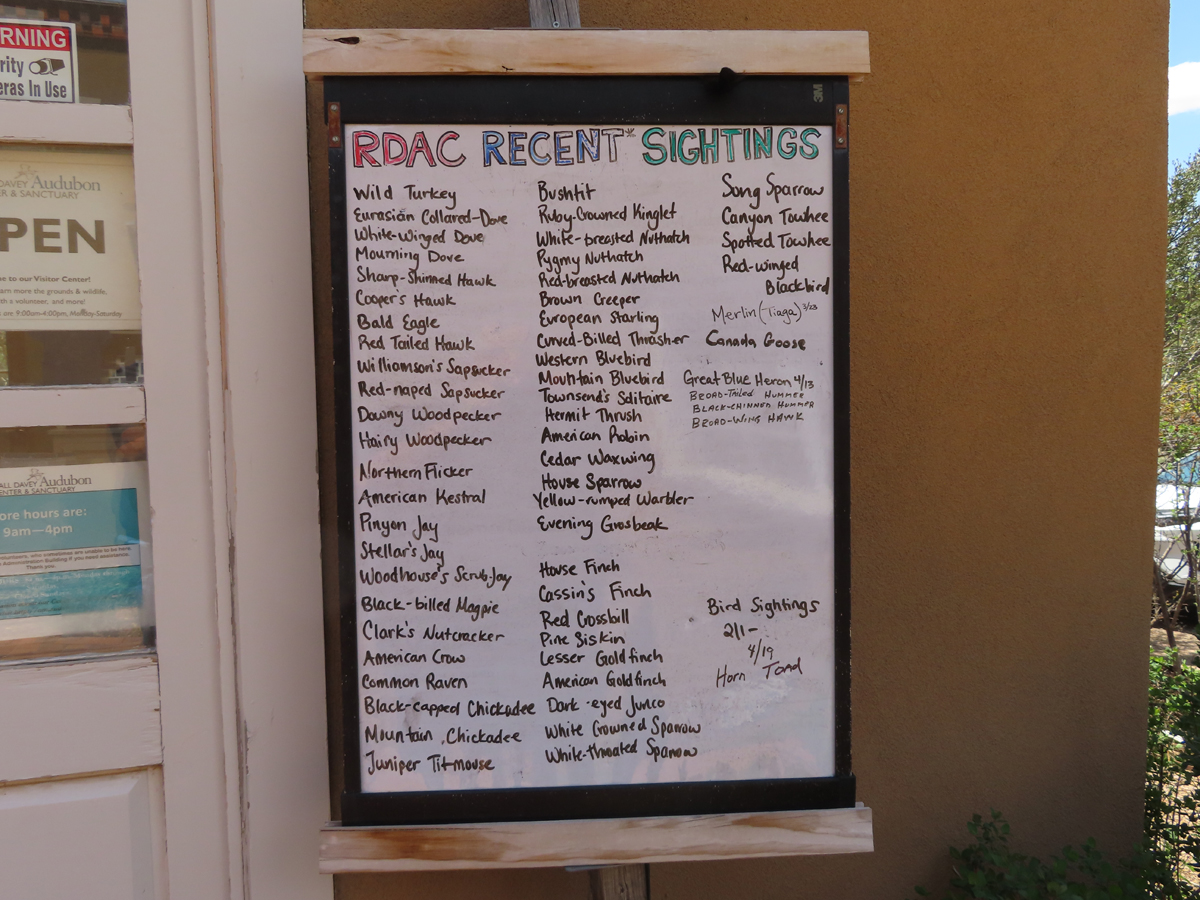 RNING
rity
eras In Use
DAVEY Audubon
ER & SANCTUARY
PEN
e to our Visitor Center!
arn more the grounds & wildlife,
th a volunteer, and more!
9:00am-4:00pm, Monday-Saturday
ALL DAVEY Audubon
ENTER & SANCTUARY
ore hours are:
9am—4pm
Thank you.
3M
RDAC RECENT* SIGHTINGS
Wild Turkey
Eurasian Collared-Dove
White-Winged Dove
Mourning Dove
Sharp-Shinned Hawk
Cooper's Hawk
Bald Eagle
Red Tailed Hawk
Williamson's Sapsucker
Red-naped Sapsucker
Downy Woodpecker
Hairy Woodpecker
Northern Flicker
American Kestral
Pinyon Jay
Stellar's Jay
Woodhouse's Scrub Jay
Black-billed Magpie
Clark's Nutcracker
American Crow
Common Raven
Black-capped Chickadee
Mountain Chickadee
Juniper Titmouse
Bushtit
Ruby-Crowned Kinglet
White-breasted Nuthatch
Pygmy Nuthatch
Red-breasted Nuthatch
Brown Creeper
European Starling
Curved-Billed Thrasher
Western Bluebird
Mountain Bluebird
Townsend's Solitaire
Hermit Thrush
American Robin
Cedar Waxwing
House Sparrow
Yellow-rumped Warbler
Evening Grosbeak
House Finch
Cassin's Finch
Red Crossbill
Pine Siskin
Lesser Goldfinch
American Goldfinch
Dark-eyed Junco
White Crowned Sparrow
White-throated Sparrow
Song Sparrow
Canyon Towhee
Spotted Towhee
Red-winged
Blackbird
Merlin (Tiaga) 3/23
Canada Goose
Great Blue Heron 4/13
BROAD-TAILED HUMMER
BLACK-CHINNED HUMMER
BROAD-WING HAWK
Bird Sightings
2/1-
4/19
Horn Toad